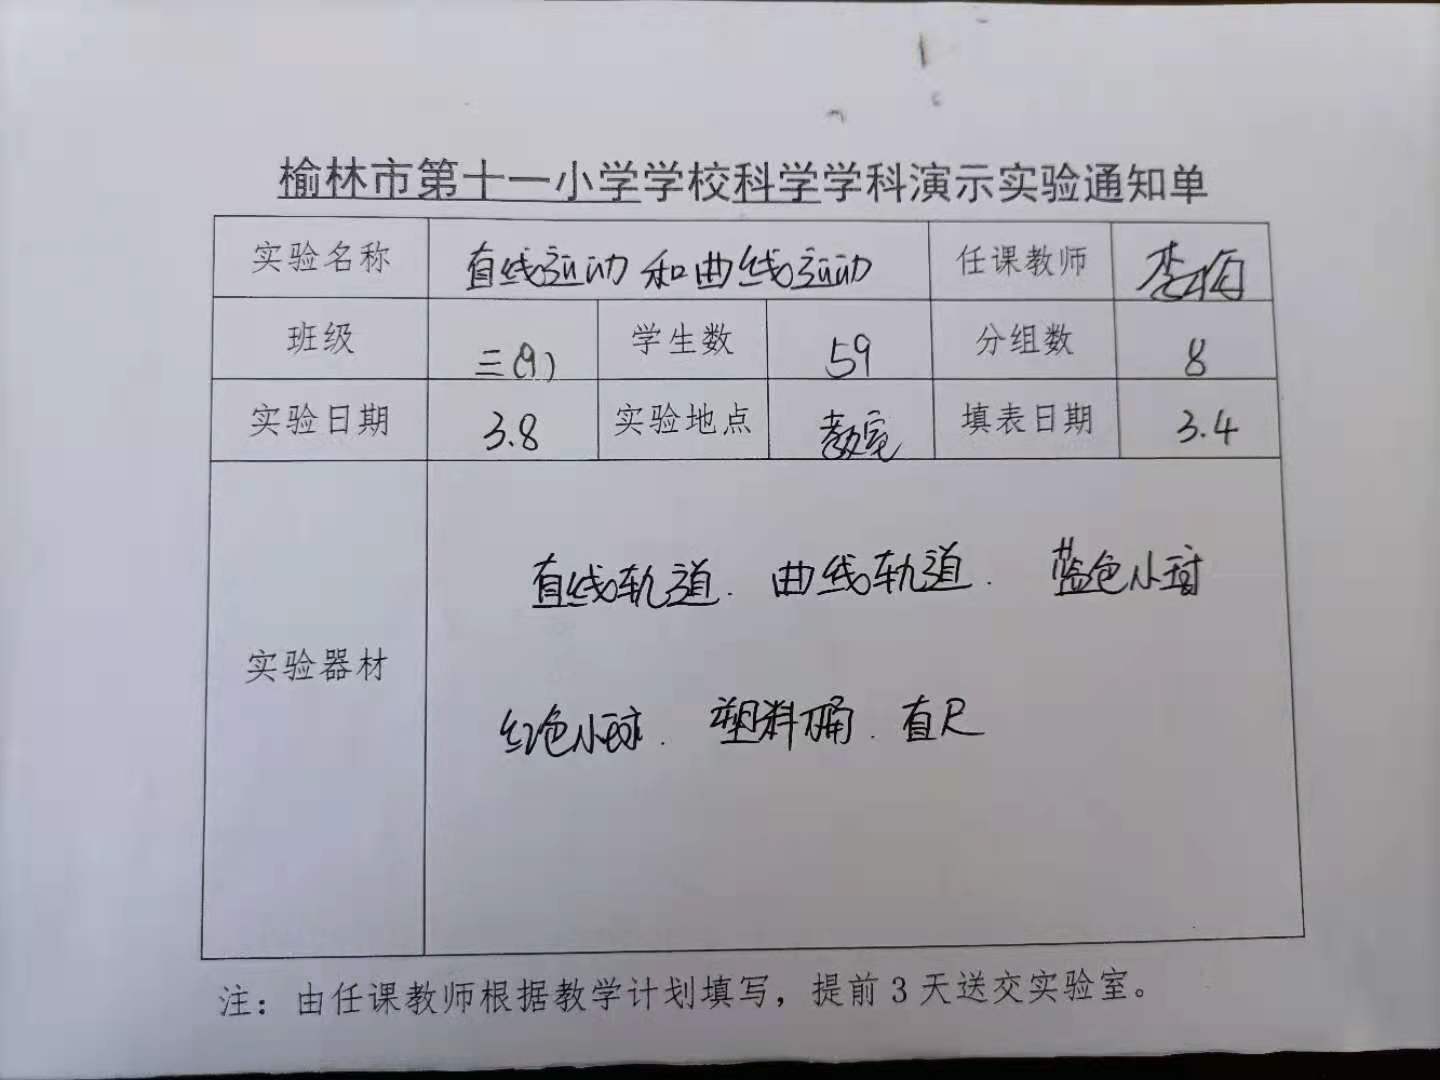 榆林市第十一小学学校科学学科演示实验通知单
实验名称 直线运动和曲线运动 任课教师 李梅
班级 三(9) 学生数 59 分组数 8
实验日期 3.8 实验地点 教室 填表日期 3.4
实验器材
直线轨道. 曲线轨道. 蓝色小球
红色小球. 塑料桶. 直尺
注：由任课教师根据教学计划填写，提前3天送交实验室。